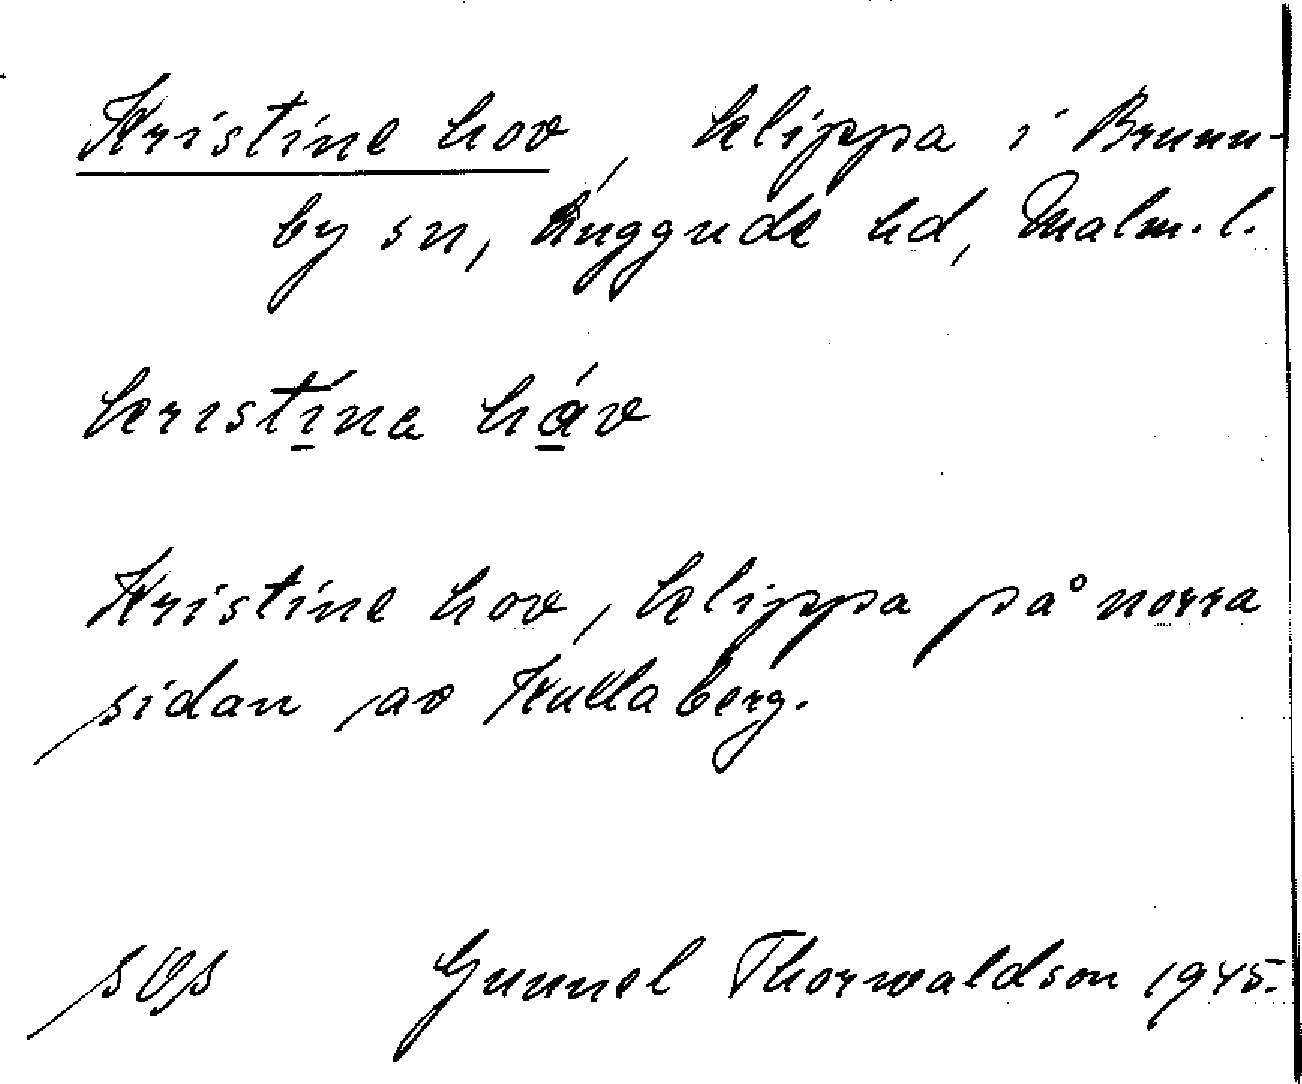 Kristine hov, klippa i Brunn-
by sn, Luggude hd, Malm. l.
kristína háv
Kristine hov, klippa på norra
sidan av Kullaberg.
Gunnel Thorwaldson 1945.